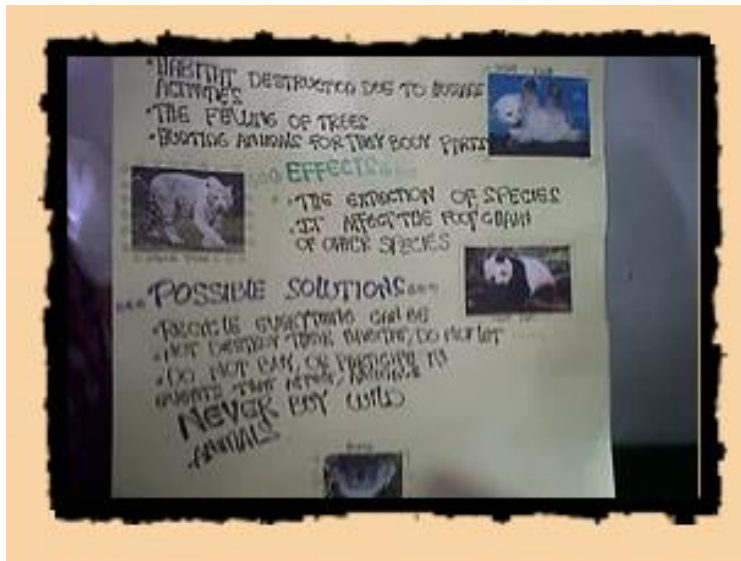 • HABITAT DESTRUCTED DUE TO HUMANS
ACTIVITIES
• THE FELLING OF TREES
• HUNTING ANIMALS FOR THEY BODY PARTS
EFFECTS
• THE EXTINCTION OF SPECIES
• IT AFFECT THE FOOD CHAIN
OF OTHER SPECIES
POSSIBLE SOLUTIONS
• RECYCLE EVERYTHING CAN BE
• NOT DESTROY THEIR HABITAT, DO NOT LET
• DO NOT BUY, OR PARTICIPE IN
EVENTS THAT ANIMALS
NEVER BUY WILD
ANIMALS